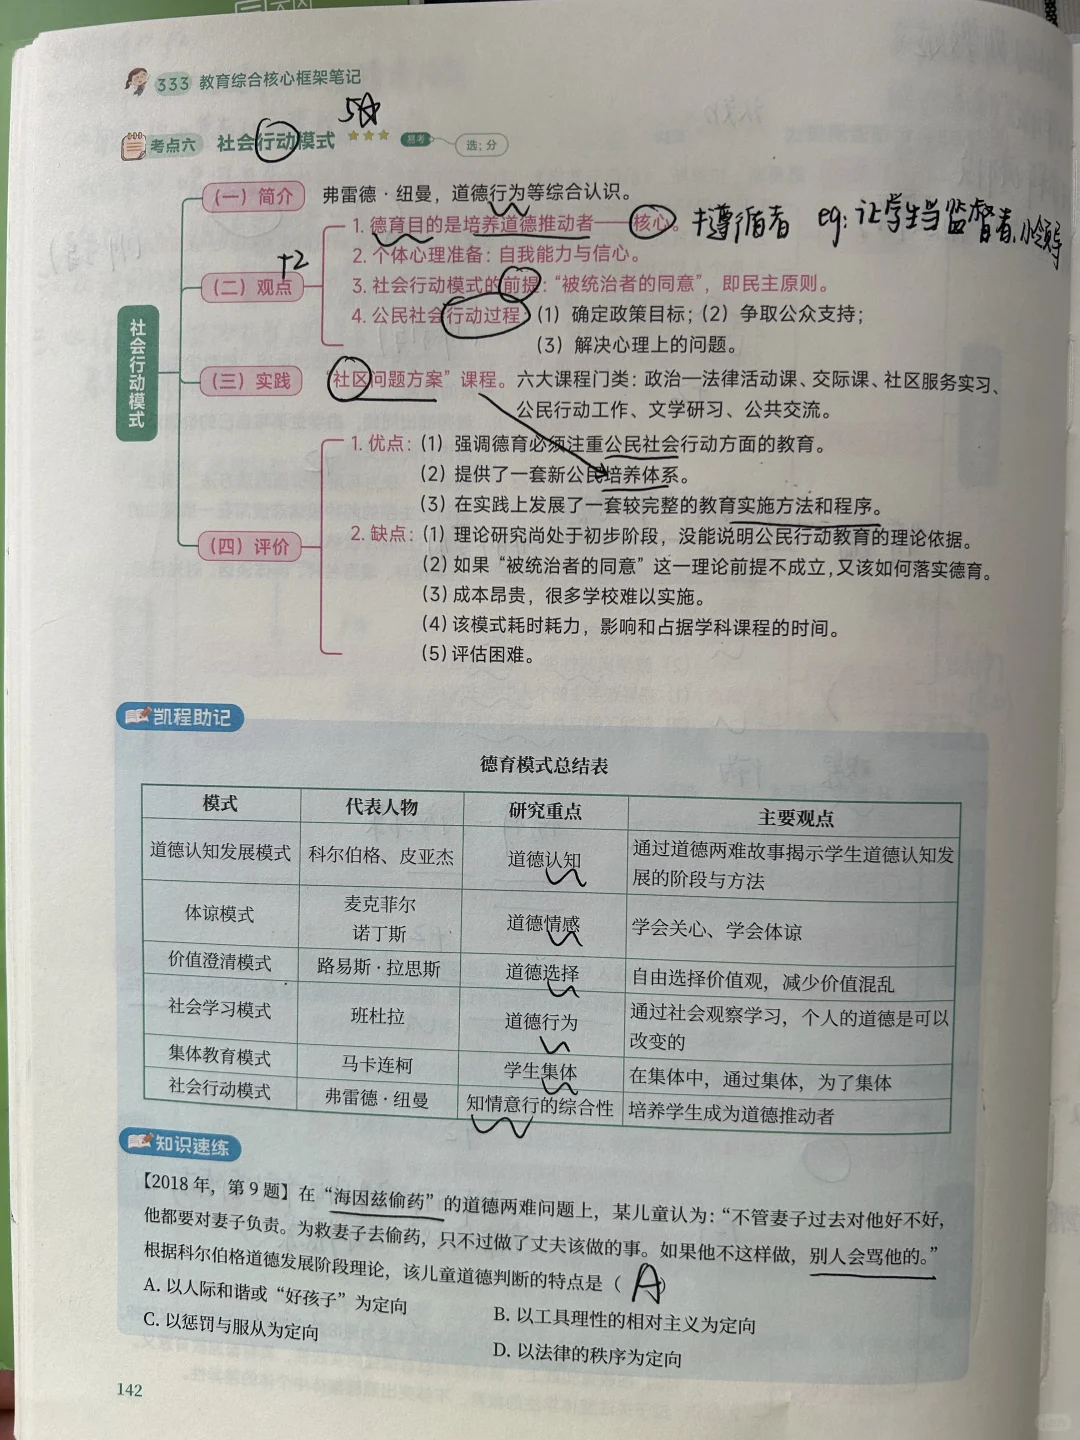 333 教育综合核心框架笔记
5☆
考点六 社会行动模式 ★★★ 易考 选;分
社会行动模式
(一) 简介 弗雷德·纽曼，道德行为等综合认识。
(二) 观点 +2
1. 德育目的是培养道德推动者——核心。 非遵循者 eg: 让学生当监督者、小领导
2. 个体心理准备：自我能力与信心。
3. 社会行动模式的前提：“被统治者的同意”，即民主原则。
4. 公民社会行动过程：(1) 确定政策目标；(2) 争取公众支持；
(3) 解决心理上的问题。
(三) 实践 “社区问题方案”课程。六大课程门类：政治—法律活动课、交际课、社区服务实习、
公民行动工作、文学研习、公共交流。
(四) 评价
1. 优点：(1) 强调德育必须注重公民社会行动方面的教育。
(2) 提供了一套新公民培养体系。
(3) 在实践上发展了一套较完整的教育实施方法和程序。
2. 缺点：(1) 理论研究尚处于初步阶段，没能说明公民行动教育的理论依据。
(2) 如果“被统治者的同意”这一理论前提不成立，又该如何落实德育。
(3) 成本昂贵，很多学校难以实施。
(4) 该模式耗时耗力，影响和占据学科课程的时间。
(5) 评估困难。
凯程助记
德育模式总结表
模式 代表人物 研究重点 主要观点
道德认知发展模式 科尔伯格、皮亚杰 道德认知 通过道德两难故事揭示学生道德认知发
展的阶段与方法
体谅模式 麦克菲尔
诺丁斯 道德情感 学会关心、学会体谅
价值澄清模式 路易斯·拉思斯 道德选择 自由选择价值观，减少价值混乱
社会学习模式 班杜拉 道德行为 通过社会观察学习，个人的道德是可以
改变的
集体教育模式 马卡连柯 学生集体 在集体中，通过集体，为了集体
社会行动模式 弗雷德·纽曼 知情意行的综合性 培养学生成为道德推动者
知识速练
【2018年，第9题】在“海因兹偷药”的道德两难问题上，某儿童认为：“不管妻子过去对他好不好，
他都要对妻子负责。为救妻子去偷药，只不过做了丈夫该做的事。如果他不这样做，别人会骂他的。”
根据科尔伯格道德发展阶段理论，该儿童道德判断的特点是（ A ）
A. 以人际和谐或“好孩子”为定向
B. 以工具理性的相对主义为定向
C. 以惩罚与服从为定向
D. 以法律的秩序为定向
142